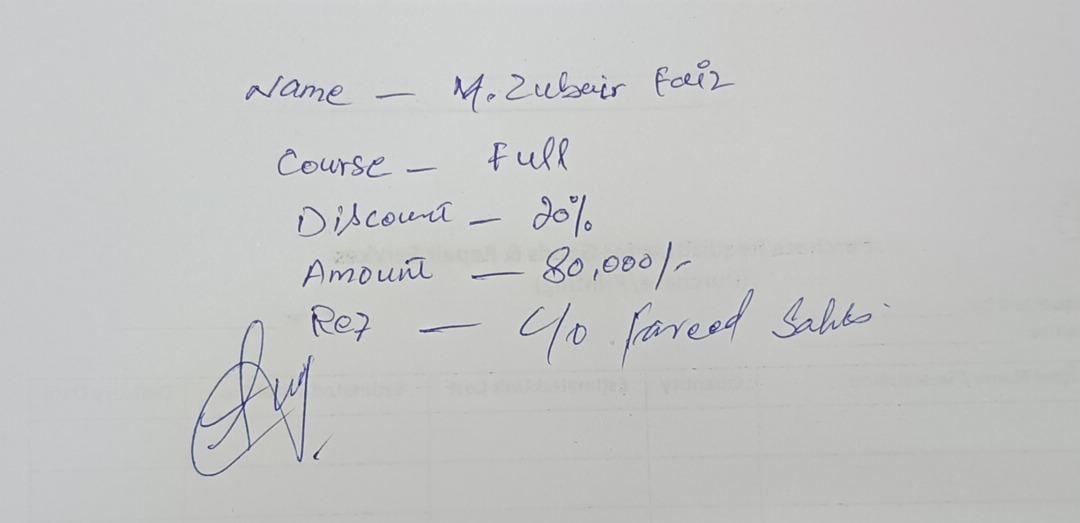 Name — M. Zubair Faiz
Course — Full
Discount — 20%
Amount — 80,000/-
Ref — C/O Fareed Sahb